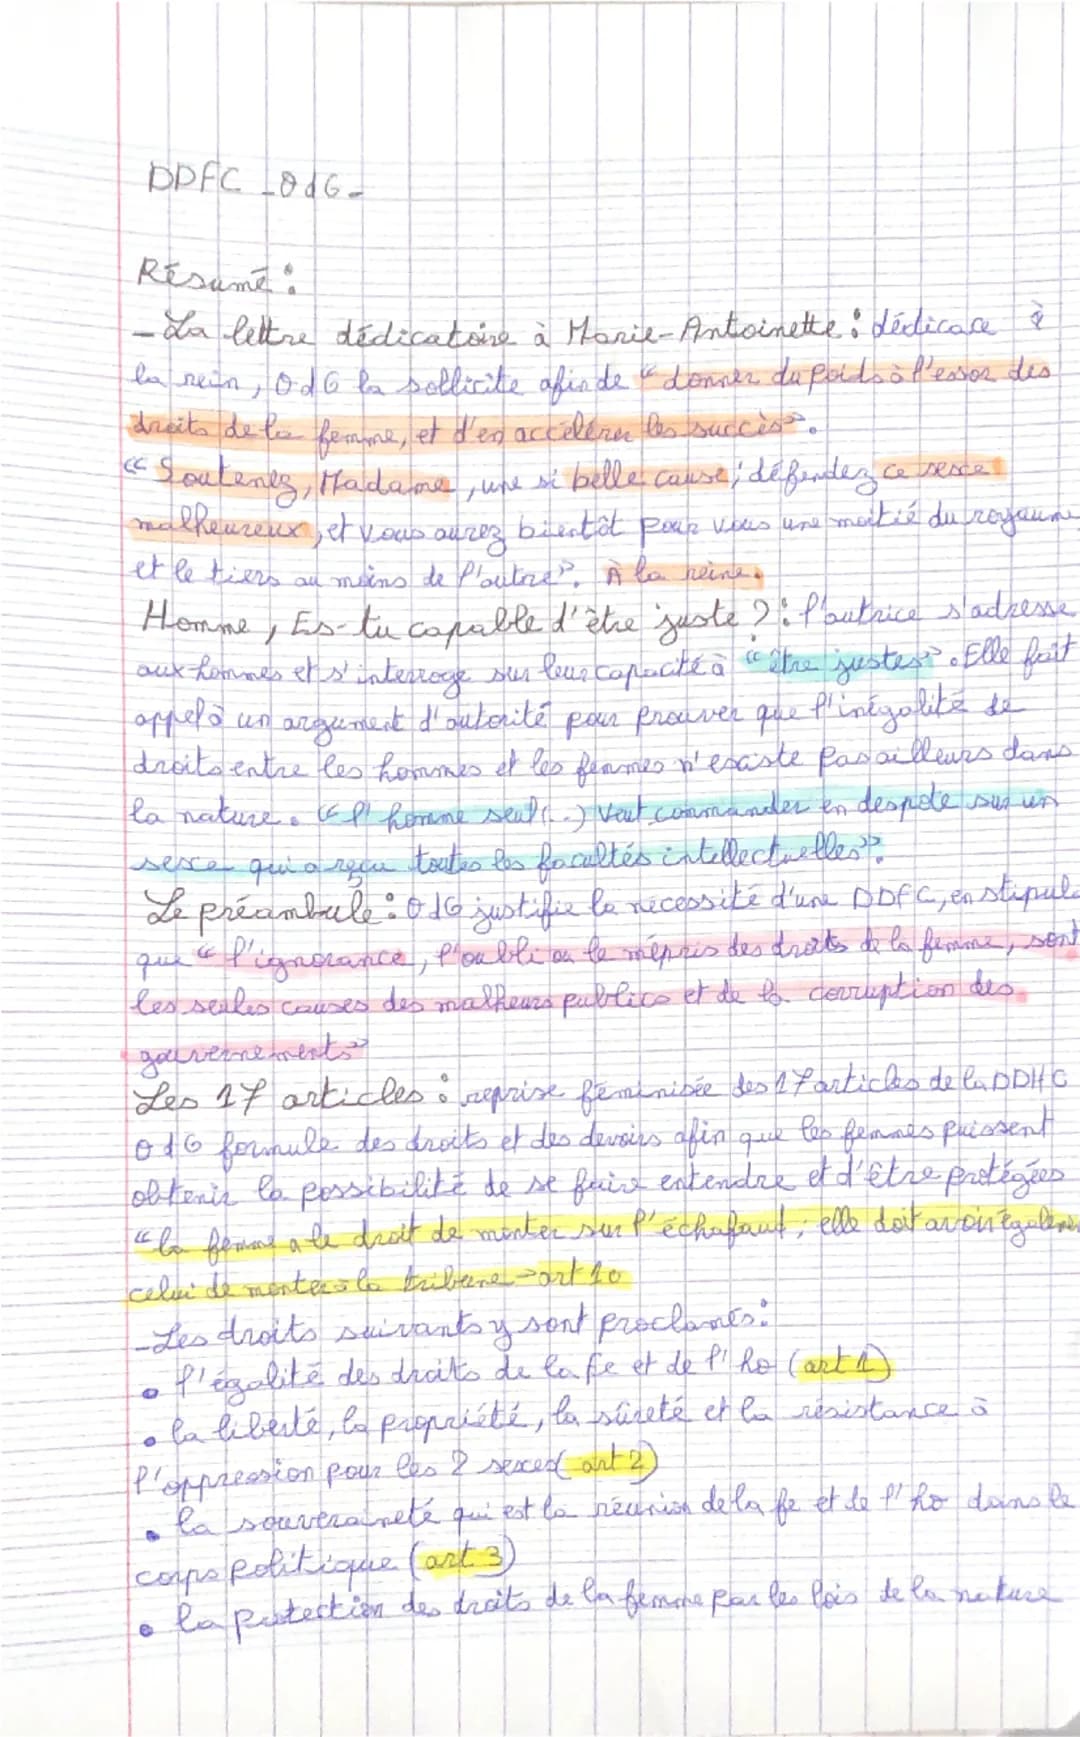 DDFC - OdG -
Résumé :
- La lettre dédicatoire à Marie-Antoinette : dédicace à
la rein, OdG la sollicite afin de "donner du poids à l'essor des
droits de la femme, et d'en accélérer les succès".
"Soutenez, Madame, une si belle cause ; défendez ce sexe
malheureux, et vous aurez bientôt pour vous une moitié du royaume
et le tiers au moins de l'autre". À la reine.
Homme, Es-tu capable d'être juste ? : l'autrice s'adresse
aux hommes et s'interroge sur leur capacité à "être justes". Elle fait
appel à un argument d'autorité pour prouver que l'inégalité de
droits entre les hommes et les femmes n'existe pas ailleurs dans
la nature. "l'homme seul (...) Veut commander en despote sur un
sexe qui a reçu toutes les facultés intellectuelles".
Le préambule : OdG justifie la nécessité d'une DDFC, en stipule
que "l'ignorance, l'oubli ou le mépris des droits de la femme, sont
les seules causes des malheurs publics et de la corruption des
gouvernements"
Les 17 articles : reprise féminisée des 17 articles de la DDHC
OdG formule des droits et des devoirs afin que les femmes puissent
obtenir la possibilité de se faire entendre et d'être protégées
"la femme a le droit de monter sur l'échafaut ; elle doit avoir également
celui de monter à la tribune → art 10
- Les droits suivants y sont proclamés :
• l'égalité des droits de la fe et de l'ho (art 1)
• la liberté, la propriété, la sûreté et la résistance à
l'oppression pour les 2 sexes (art 2)
• la souveraineté qui est la réunion de la fe et de l'ho dans le
corps politique (art 3)
• la protection des droits de la femme par les lois de la nature